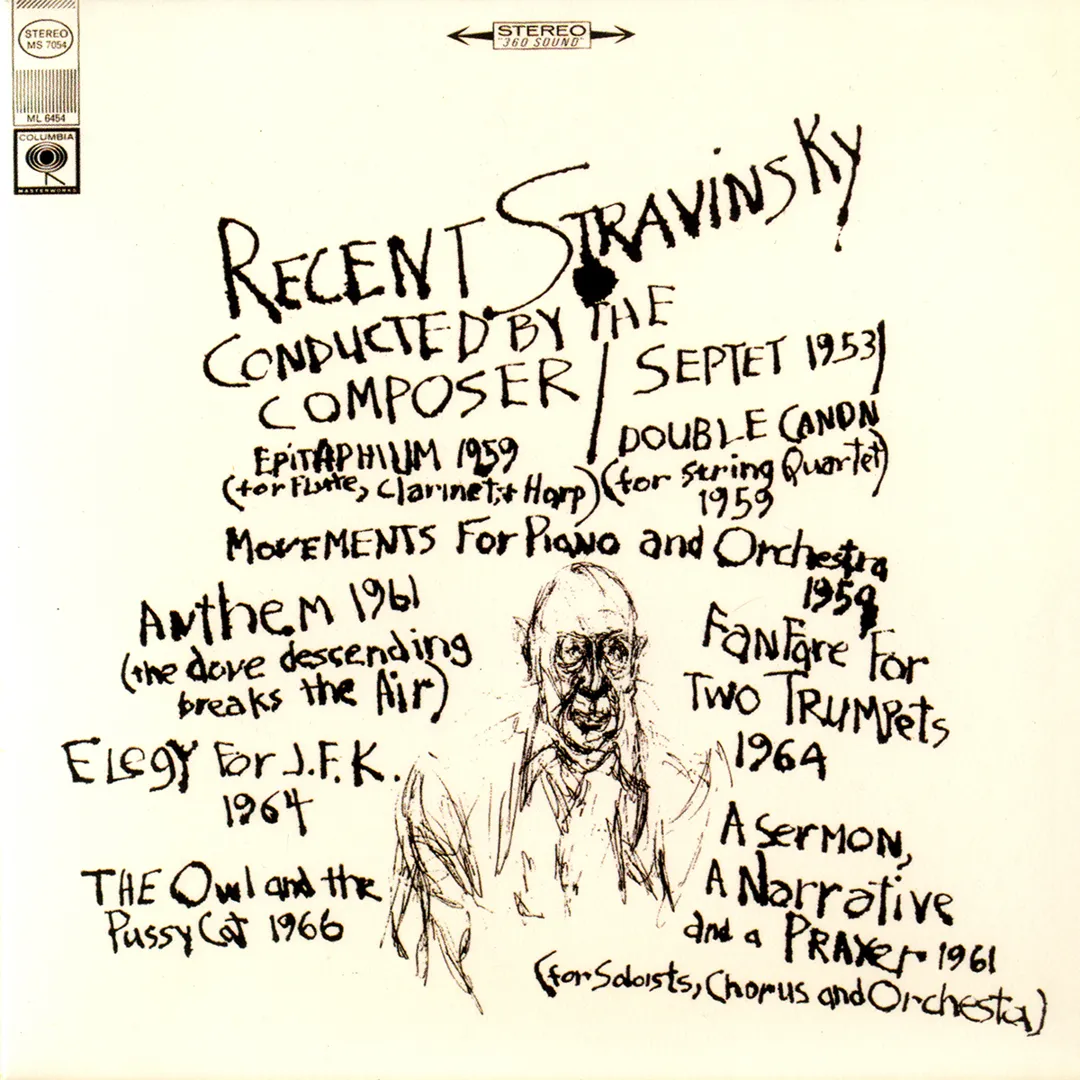 STEREO
MS 7054
ML 6454
COLUMBIA
MASTERWORKS
STEREO
"360 SOUND"
RECENT STRAVINSKY
CONDUCTED BY THE
COMPOSER
SEPTET 1953
EPITAPHIUM 1959
(for Flute, Clarinet, + Harp)
DOUBLE CANON
(for string Quartet)
1959
MOVEMENTS For Piano and Orchestra
1959
Anthem 1961
(the dove descending
breaks the Air)
FanFare For
Two TRUMPets
1964
Elegy For J.F.K.
1964
A Sermon,
A Narrative
and a PRAYer 1961
(for Soloists, Chorus and Orchestra)
THE Owl and the
PussyCat 1966